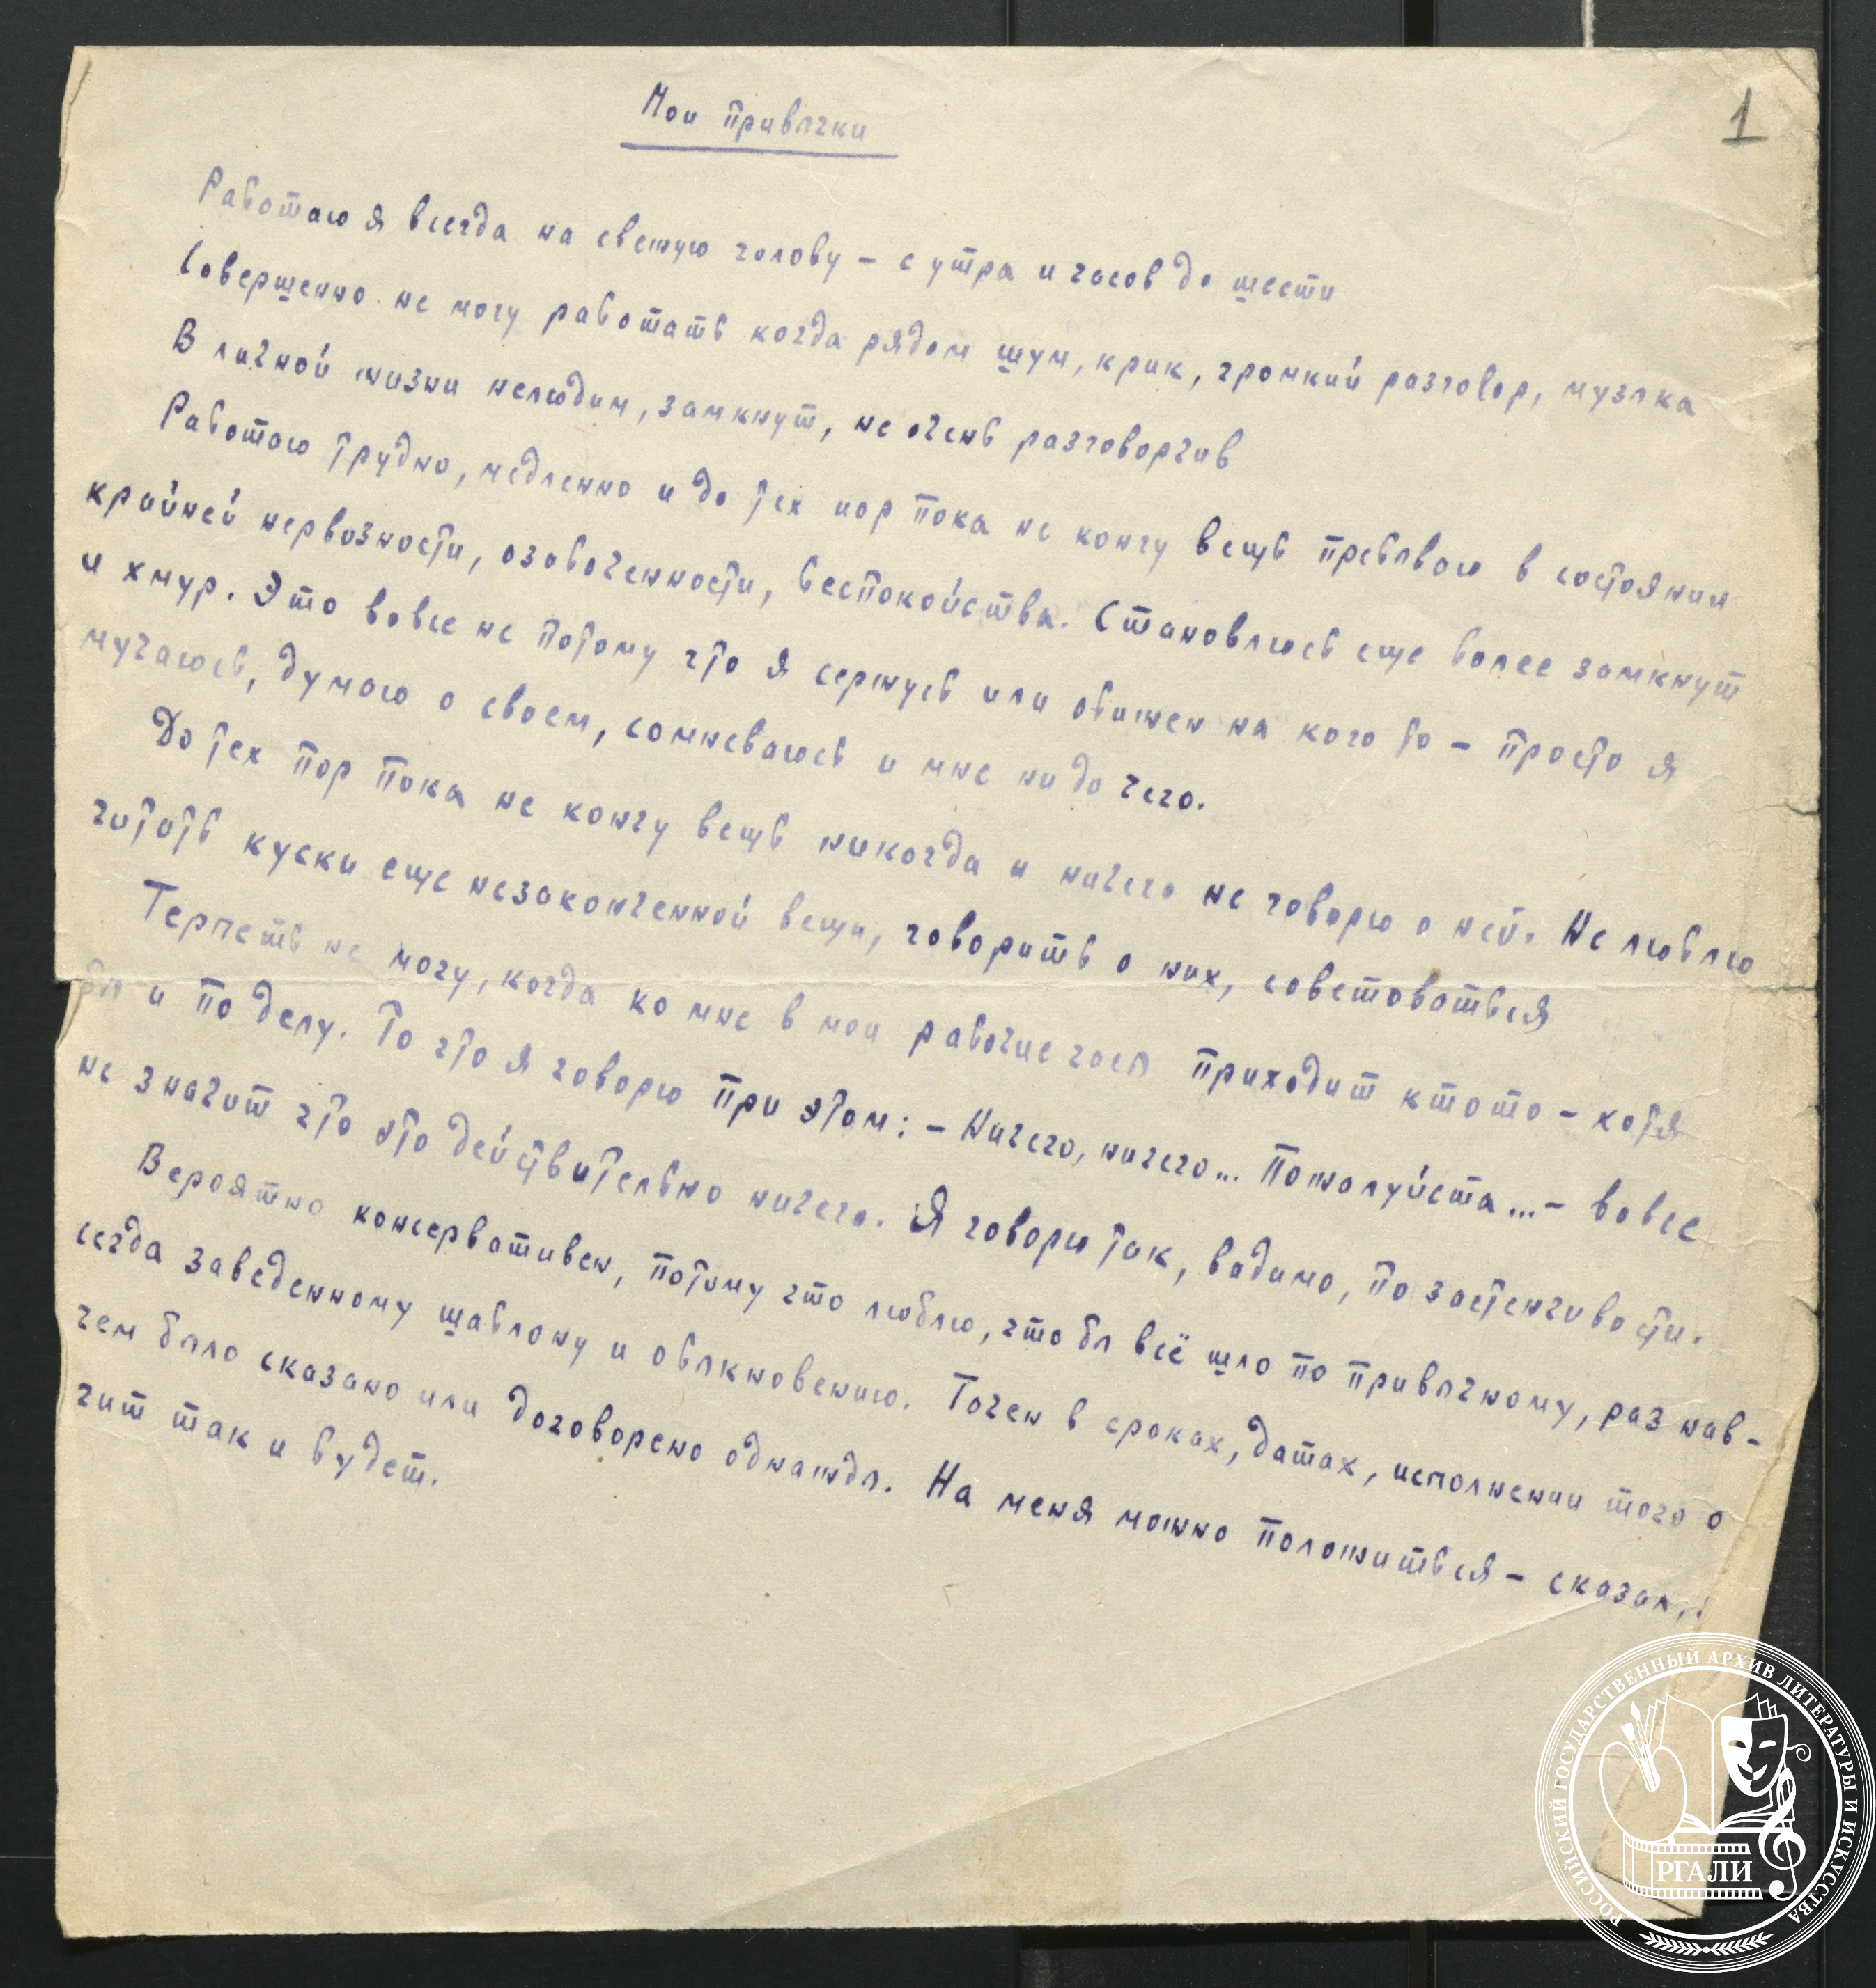 1
Мои привычки
Работаю я всегда на свежую голову – с утра и часов до шести
Совершенно не могу работать когда рядом шум, крик, громкий разговор, музыка
В личной жизни нелюдим, замкнут, не очень разговорчив
Работаю трудно, медленно и до тех пор пока не кончу вещь пребываю в состоянии
крайней нервозности, озабоченности, беспокойства. Становлюсь еще более замкнут
и хмур. Это вовсе не потому что я сержусь или обижен на кого то – просто я
мучаюсь, думаю о своем, сомневаюсь и мне ни до чего.
До тех пор пока не кончу вещь никогда и ничего не говорю о ней. Не люблю
читать куски еще незаконченной вещи, говорить о них, советоваться
Терпеть не могу, когда ко мне в мои рабочие часы приходит кто то – хотя
бы и по делу. То что я говорю при этом: – Ничего, ничего... Пожалуйста... – вовсе
не значит что это действительно ничего. Я говорю так, видимо, по застенчивости.
Вероятно консервативен, потому что люблю, что бы всё шло по привычному, раз нав-
сегда заведенному шаблону и обыкновению. Точен в сроках, датах, исполнении того о
чем было сказано или договорено однажды. На меня можно положиться – сказал,
чит так и будет.
РОССИЙСКИЙ ГОСУДАРСТВЕННЫЙ АРХИВ ЛИТЕРАТУРЫ И ИСКУССТВА
РГАЛИ